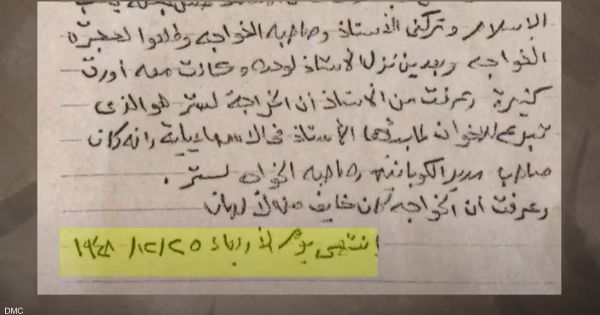 الاسلام وتركنى الأستاذ وصاحبه الخواجه وطلعوا لحجرة
الخواجه وبعدين نزل الاستاذ لوحده وكانت معه أورق
كثيرة وعرفت من الأستاذ أن الخواجة لستر هو الذى
تبرع للاخوان لما بدأها الأستاذ فى الاسماعيلية وانه كان
صاحب مدير الكوبانيه وصاحبه الخواجه لستر.
وعرفت أن الخواجه كان خايف من
إنتهى يوم الأربعاء ٢٥/١٢/١٩٤٨
DMC